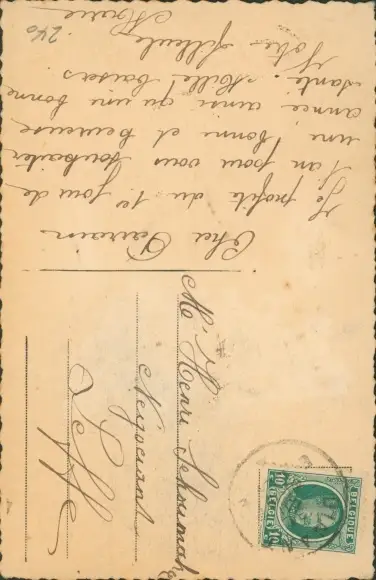 Cher Parrain
Je profite du 1er jour de
l'an pour vous souhaiter
une bonne et heureuse
année ainsi qu'une bonne
santé. Mille baisers
Votre filleule
Marie
240
Mr Henri
Négociant
Leffe
BELGIQUE
10 10
BELGIË